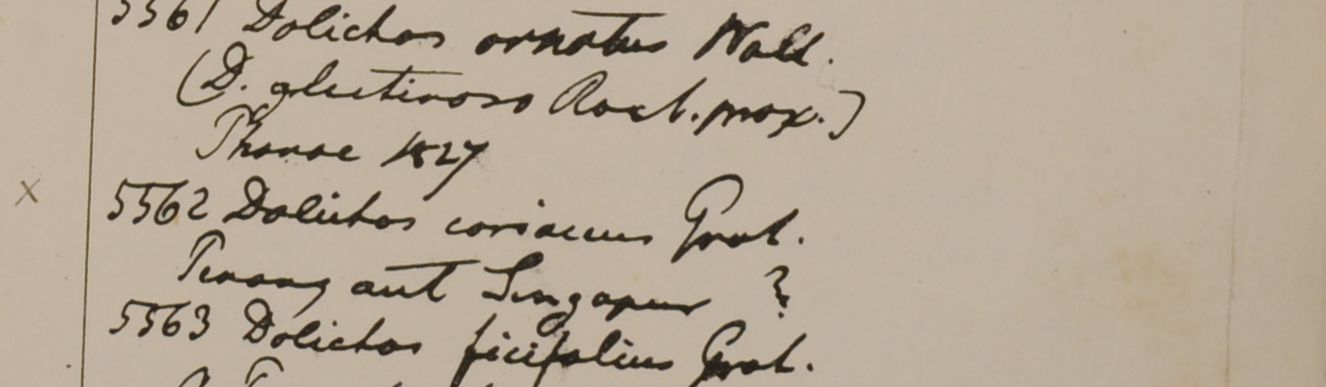 5561 Dolichos ornatus Wall.
(D. glutinoso Roxb. prox.)
Prome 1827
x 5562 Dolichos coriaceus Grah.
Penang aut Singapur ?
5563 Dolichos ficifolius Grah.